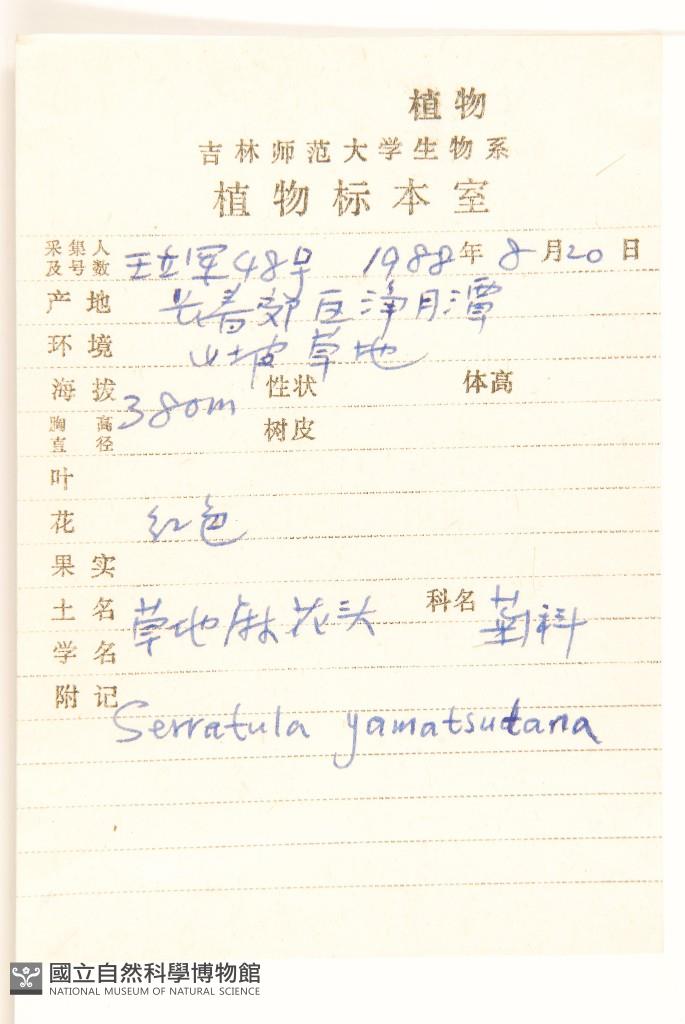 植物
吉林师范大学生物系
植物标本室
采集人及号数 王立军48号 1988年8月20日
产地 长春郊区净月潭
环境 山坡草地
海拔 380m 性状 体高
胸高直径 树皮
叶
花 红色
果实
土名 草地麻花头 科名 菊科
学名
附记 Serratula yamatsutana
國立自然科學博物館
NATIONAL MUSEUM OF NATURAL SCIENCE